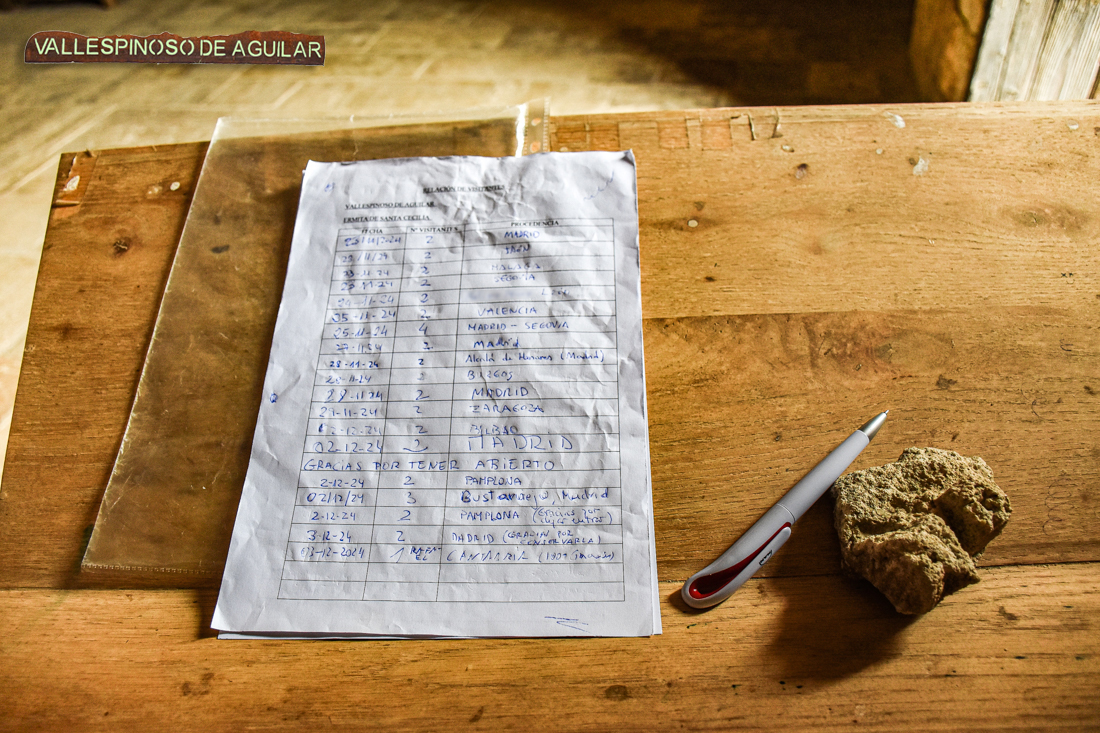 VALLESPINOSO DE AGUILAR
RELACIÓN DE VISITANTES
VALLESPINOSO DE AGUILAR
ERMITA DE SANTA CECILIA
FECHA Nº VISITANTES PROCEDENCIA
2 MADRID
2 JAEN
23-11-24 2
2 SEGOVIA
2
25-11-24 2 VALENCIA
25-11-24 4 MADRID - SEGOVIA
2 Madrid
28-11-24 2 Alcalá de Henares (Madrid)
2 BURGOS
2 MADRID
2 ZARAGOZA
2 BILBAO
02-12-24 2 MADRID
GRACIAS POR TENER ABIERTO
2-12-24 2 PAMPLONA
02/12/24 3 Madrid
2-12-24 2 PAMPLONA (Gracias por
3-12-24 2 MADRID (GRACIAS POR
CONSERVARLA)
03-12-2024 1 CANTABRIA